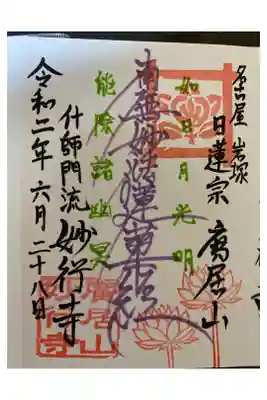 名古屋 岩塚
日蓮宗 廣居山
如日月光明
南無妙法蓮華経
能除諸幽冥
什師門流 妙行寺
令和二年六月二十八日